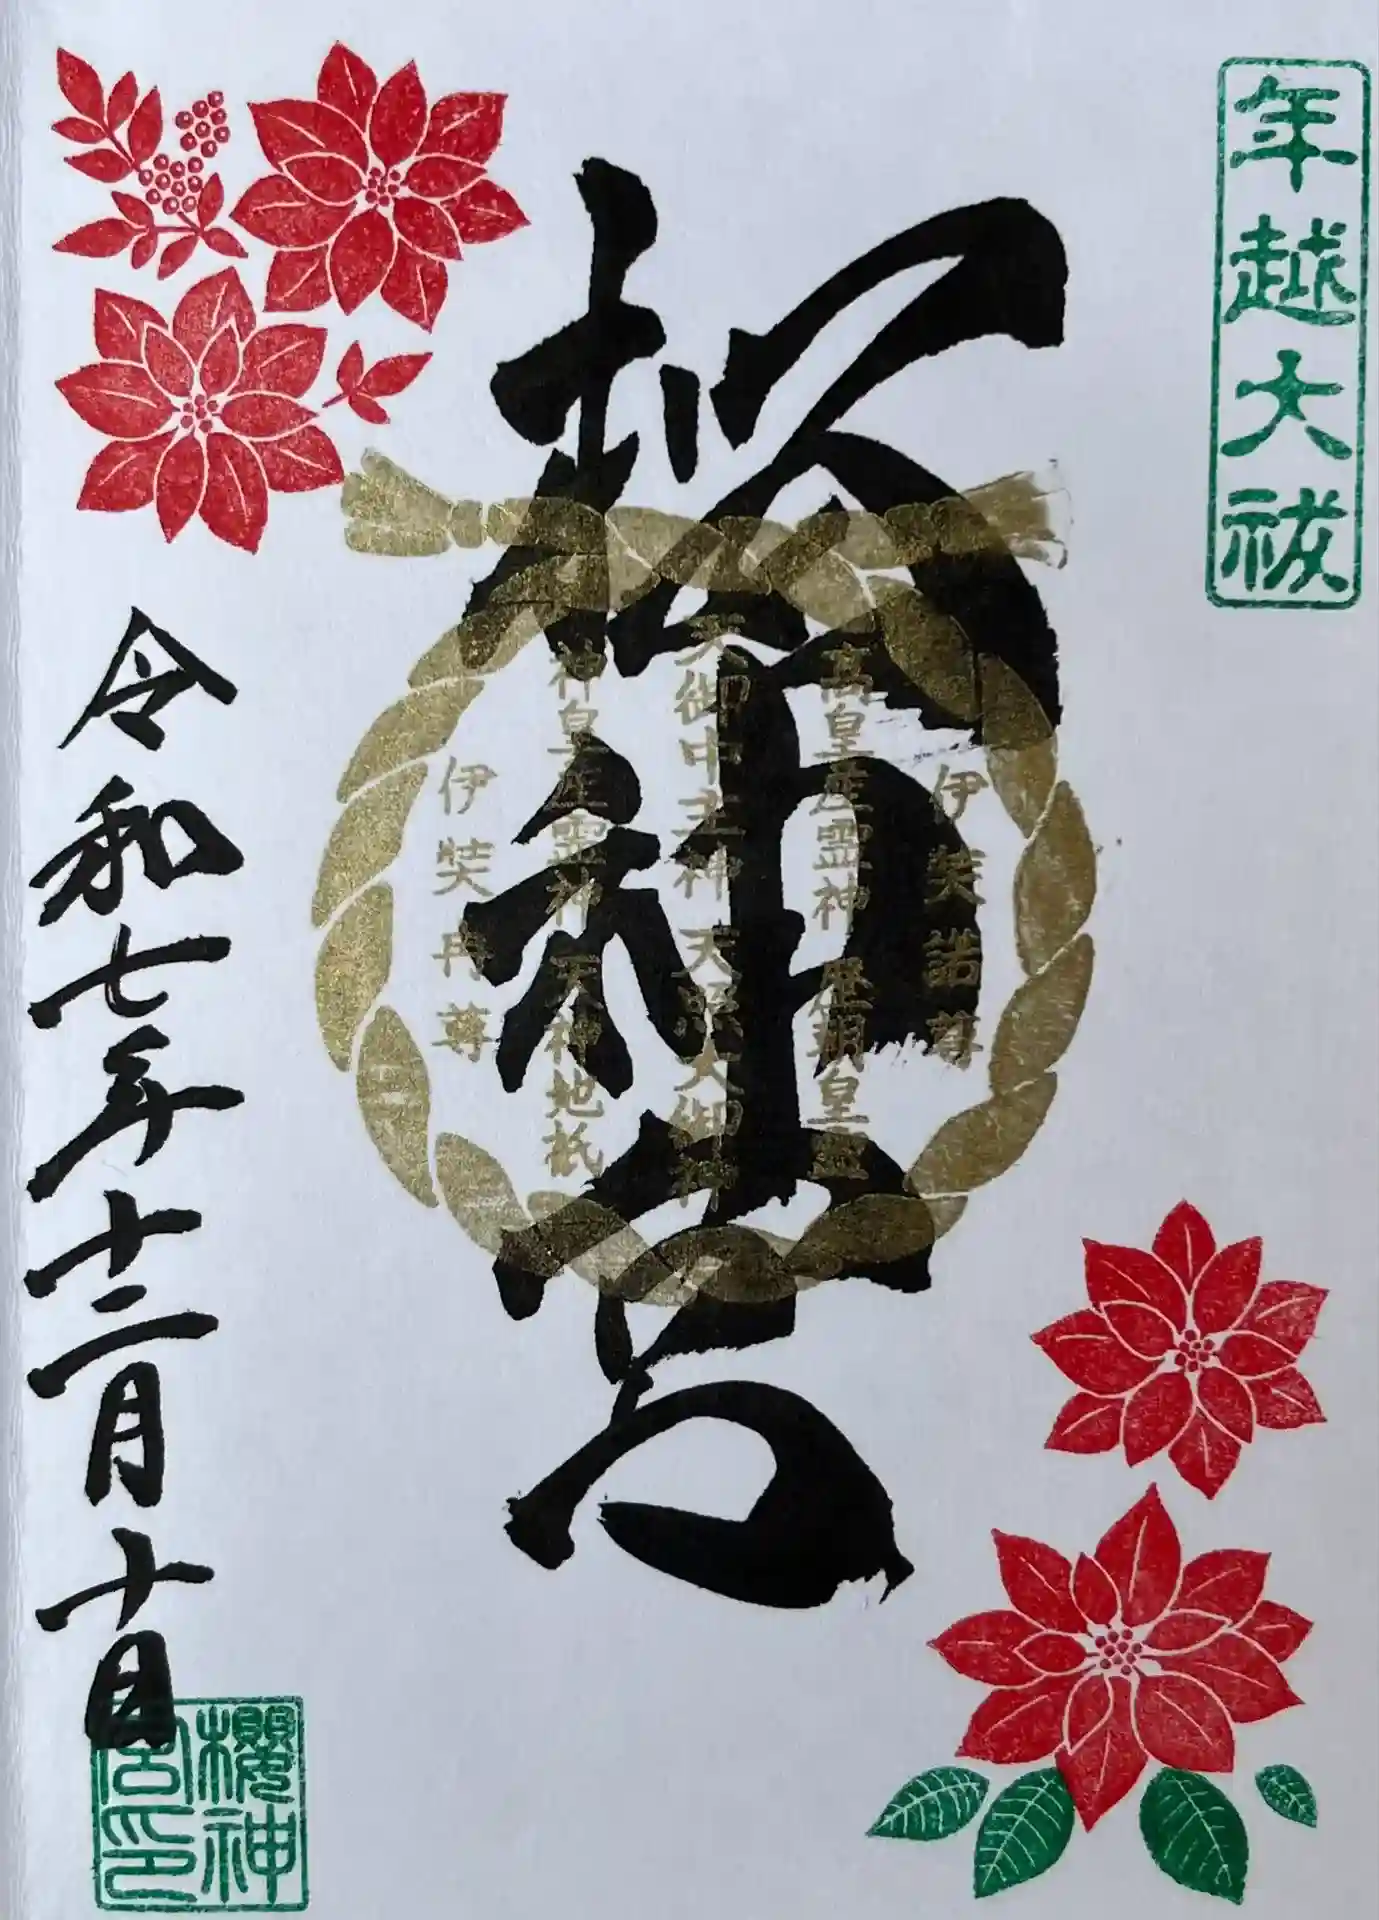 年越大祓
桜神宮
伊奘諾尊
高皇産霊神 歴朝皇霊
天御中主神 天照大御神
神皇産霊神 天神地祇
伊奘冉尊
令和七年十二月十日
櫻神宮印